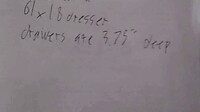 61 x 18 dresser
drawers are 3.75" deep